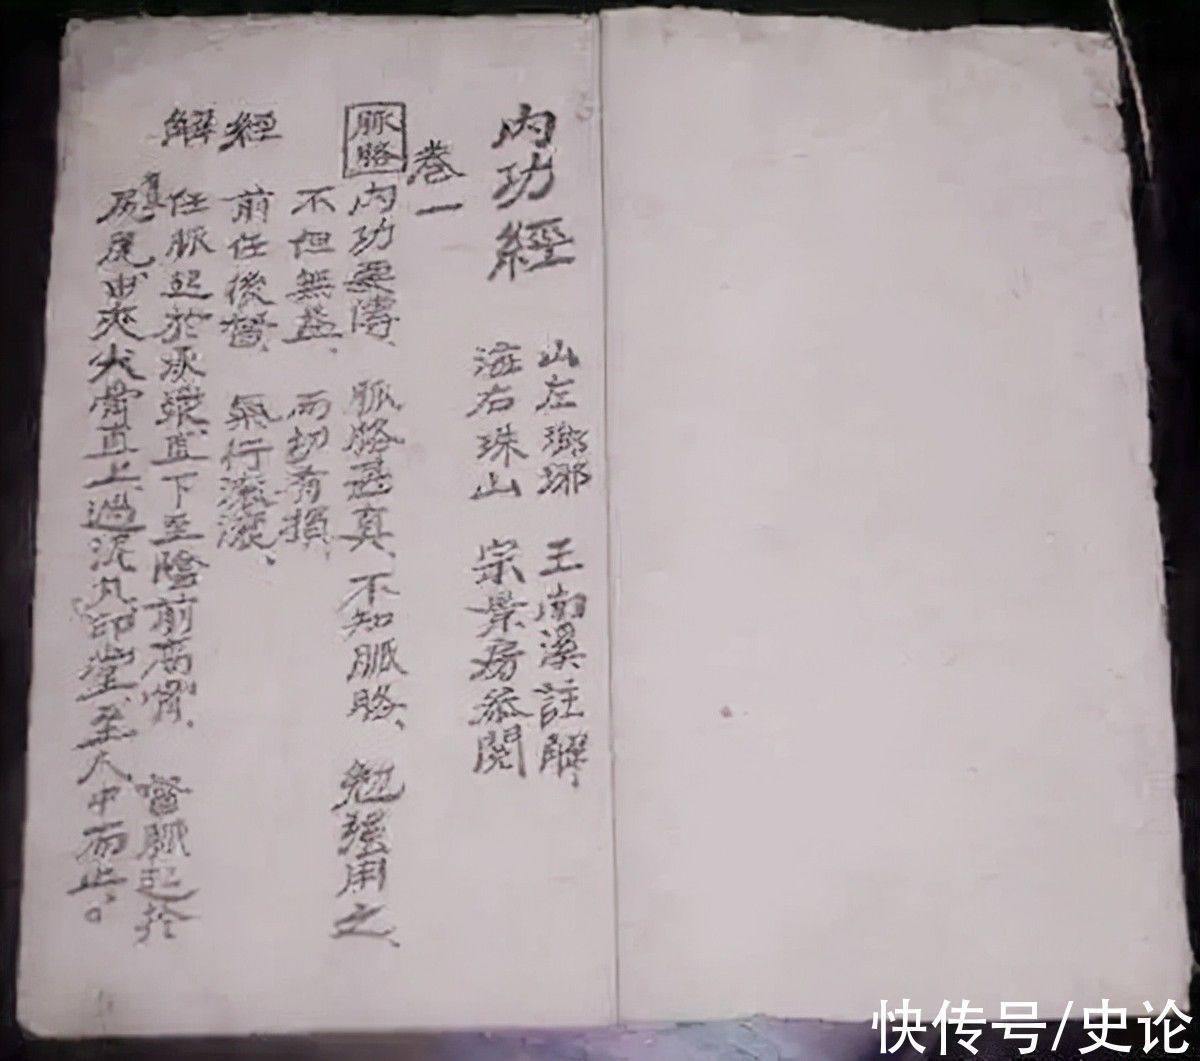 內功經
山左瑯琊 王南溪註解
海右珠山 宗景房叅閱
卷一
脈胳 內功要傳、脈胳甚真、不知脈胳、勉强用之、
不但無益、而切有損、
經 前任後督、氣行滾滾、
解 任脈起於承漿、直下至陰前高骨、督脈起於
尻尾由夾脊骨直上、過泥丸、印堂、至人中而止。
快传号/史论